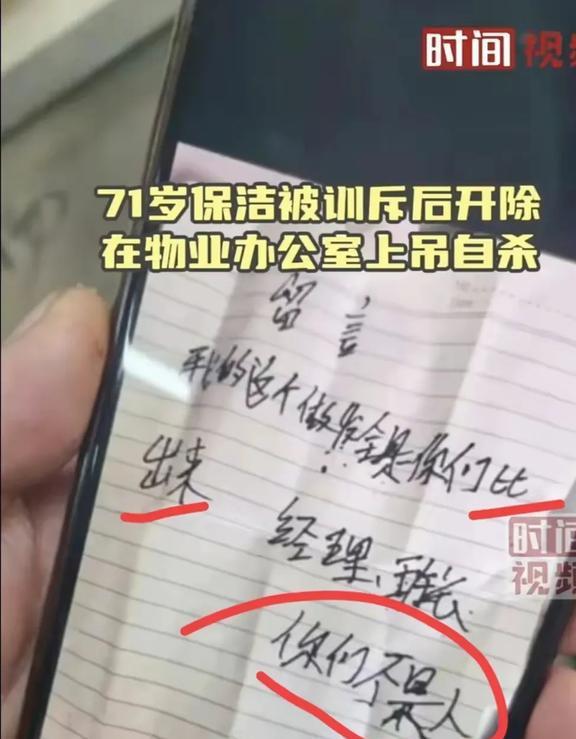 时间视频
71岁保洁被训斥后开除
在物业办公室上吊自杀
留言
我的这个做法全是你们比
出来
经理、班长
你们不是人
时间
视频